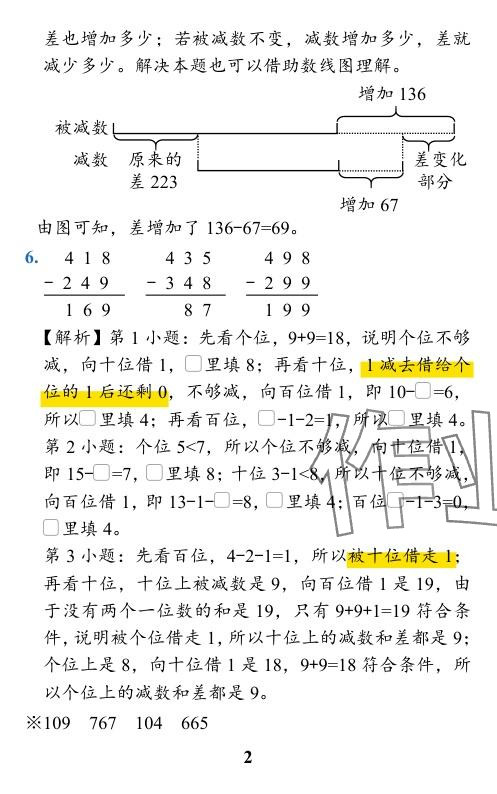 差也增加多少；若被减数不变，减数增加多少，差就
减少多少。解决本题也可以借助数线图理解。
增加 136
被减数
减数 原来的 差变化
差 223 部分
增加 67
由图可知，差增加了 136-67=69。
6. 4 1 8 4 3 5 4 9 8
- 2 4 9 - 3 4 8 - 2 9 9
1 6 9 8 7 1 9 9
【解析】第 1 小题：先看个位，9+9=18，说明个位不够
减，向十位借 1，□里填 8；再看十位，1 减去借给个
位的 1 后还剩 0，不够减，向百位借 1，即 10-□=6，
所以□里填 4；再看百位，□-1-2=1，所以□里填 4。
第 2 小题：个位 5<7，所以个位不够减，向十位借 1，
即 15-□=7，□里填 8；十位 3-1<8，所以十位不够减，
向百位借 1，即 13-1-□=8，□里填 4；百位□-1-3=0，
□里填 4。
第 3 小题：先看百位，4-2-1=1，所以被十位借走 1；
再看十位，十位上被减数是 9，向百位借 1 是 19，由
于没有两个一位数的和是 19，只有 9+9+1=19 符合条
件，说明被个位借走 1，所以十位上的减数和差都是 9；
个位上是 8，向十位借 1 是 18，9+9=18 符合条件，所
以个位上的减数和差都是 9。
※109 767 104 665
作业
2